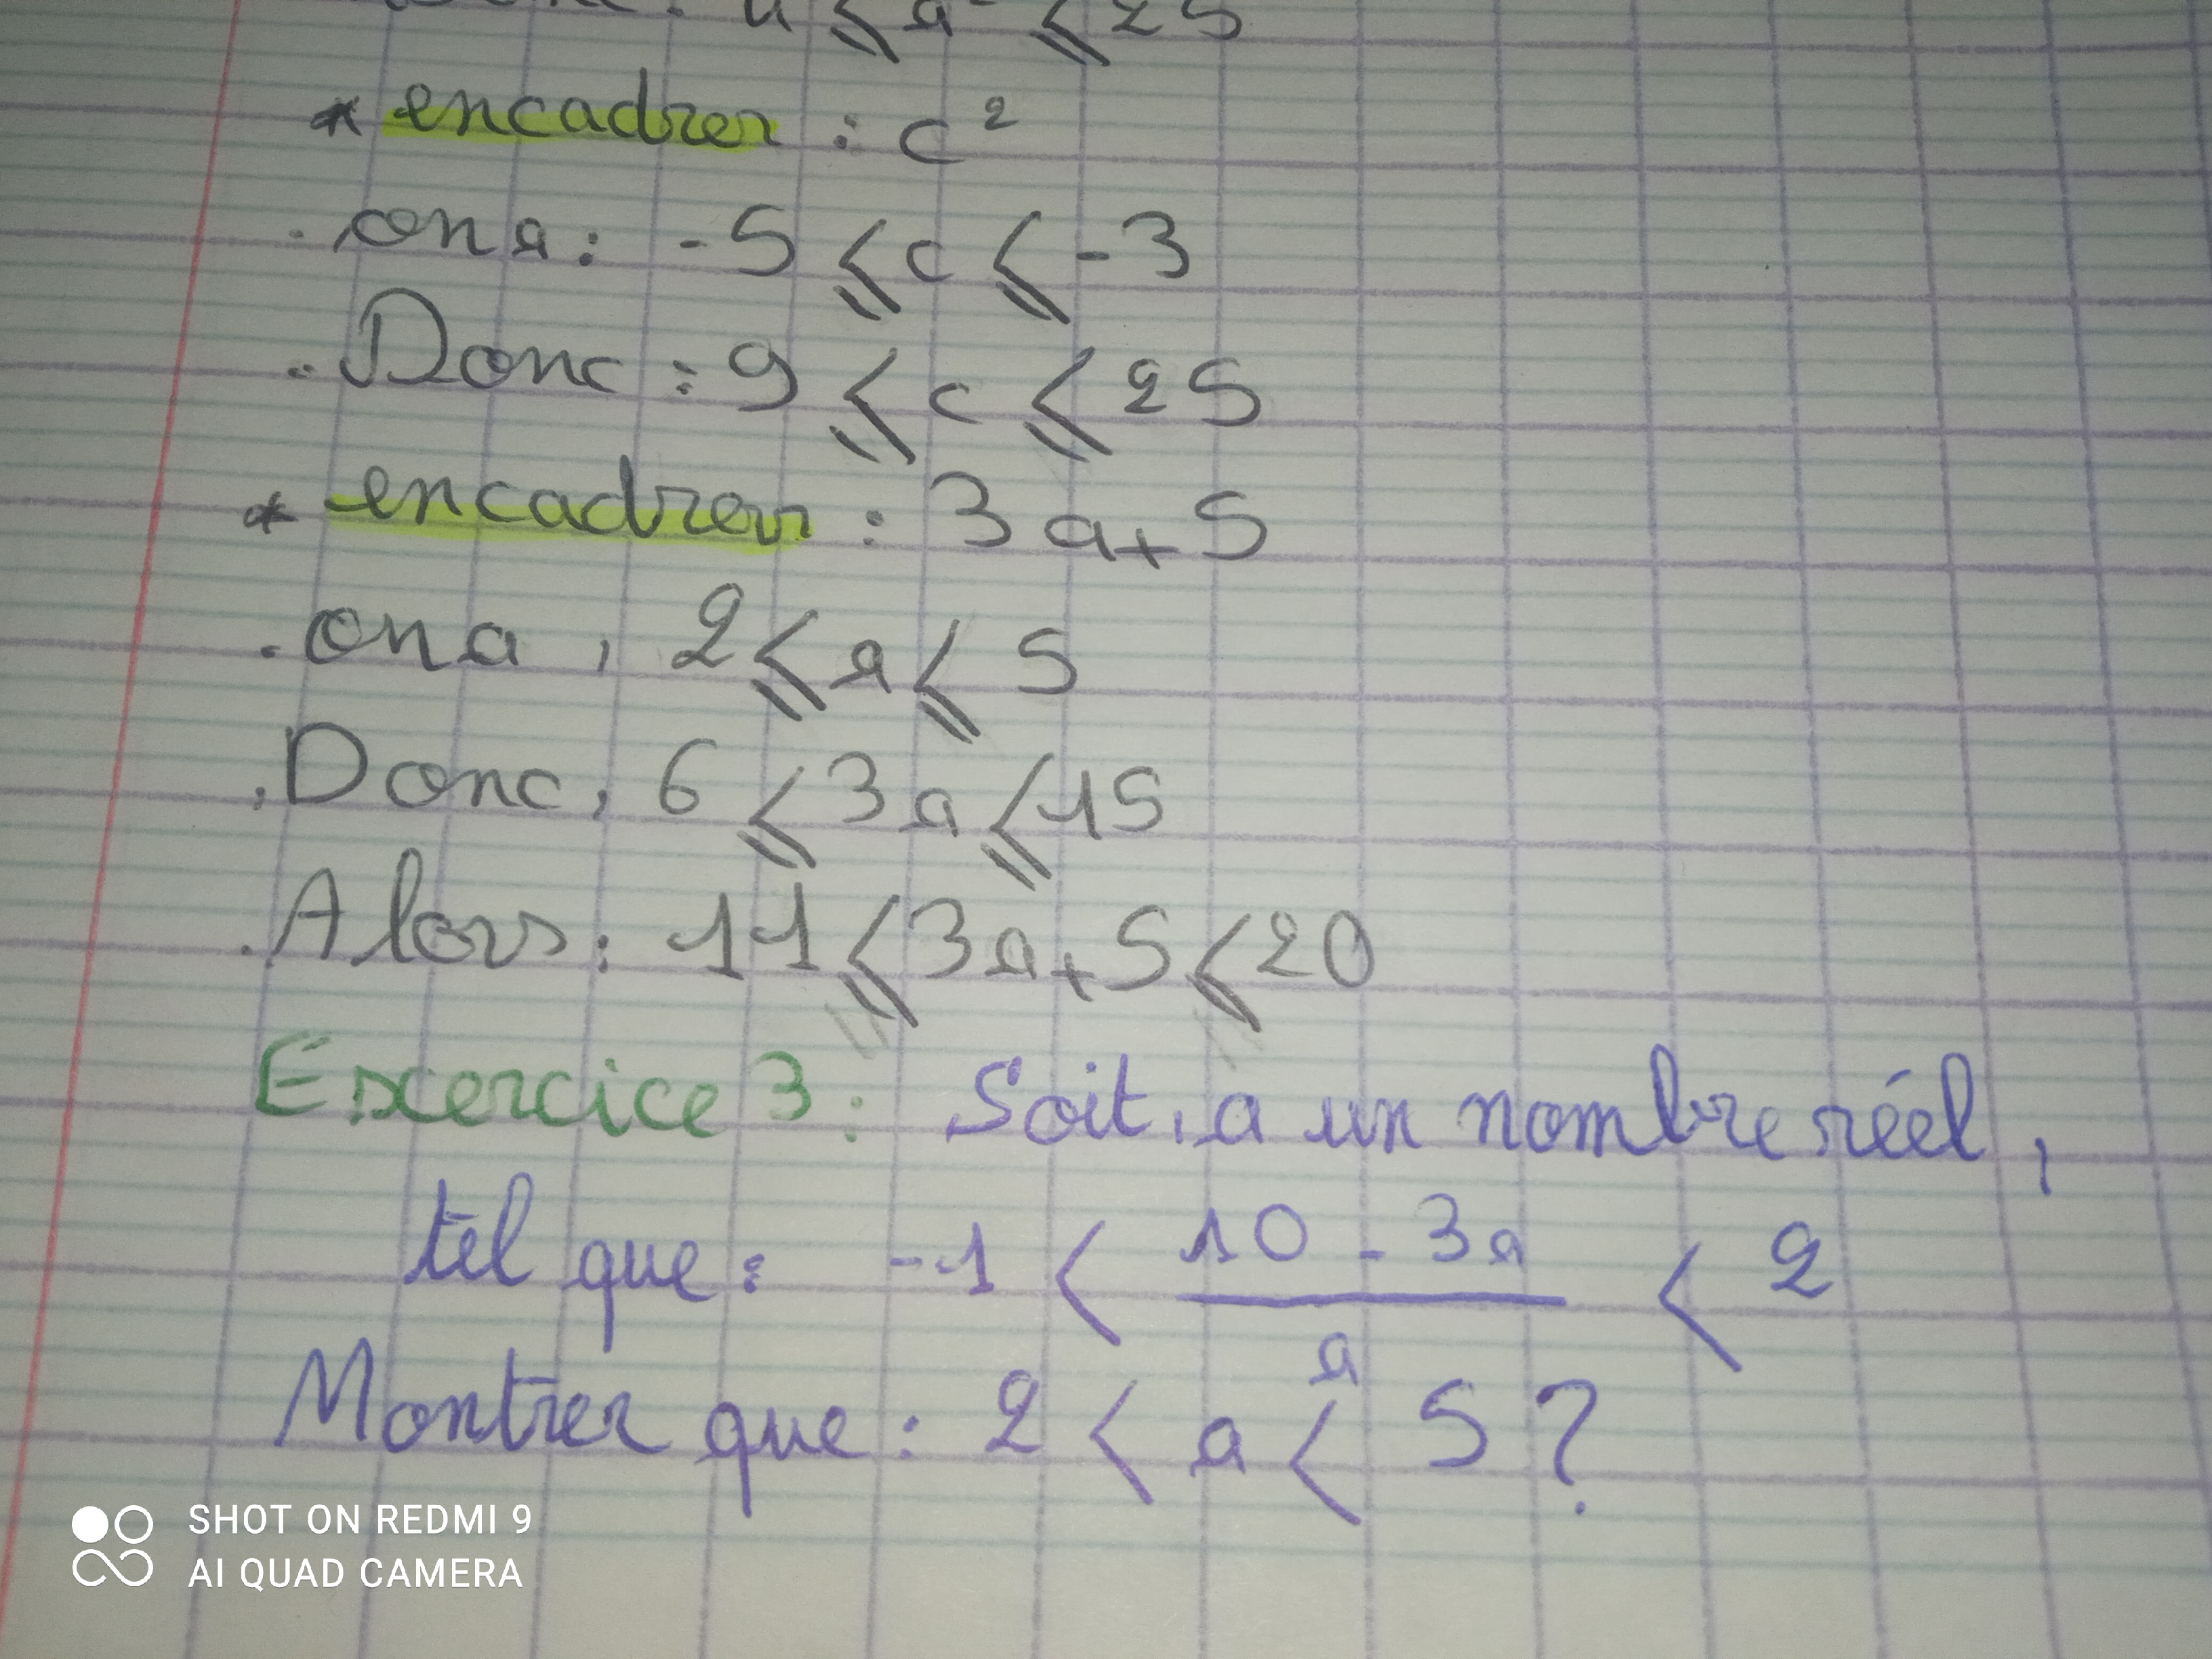 4 ⩽ a² ⩽ 25
* encadrer : c²
. on a : -5 ⩽ c ⩽ -3
. Donc : 9 ⩽ c ⩽ 25
* encadrer : 3a+5
. on a , 2 ⩽ a ⩽ 5
. Donc , 6 ⩽ 3a ⩽ 15
. Alors : 11 ⩽ 3a+5 ⩽ 20
Exercice 3 : Soit , a un nombre réel ,
tel que : -1 < (10 - 3a)/a < 2
Montrer que : 2 < a < 5 ?
SHOT ON REDMI 9
AI QUAD CAMERA